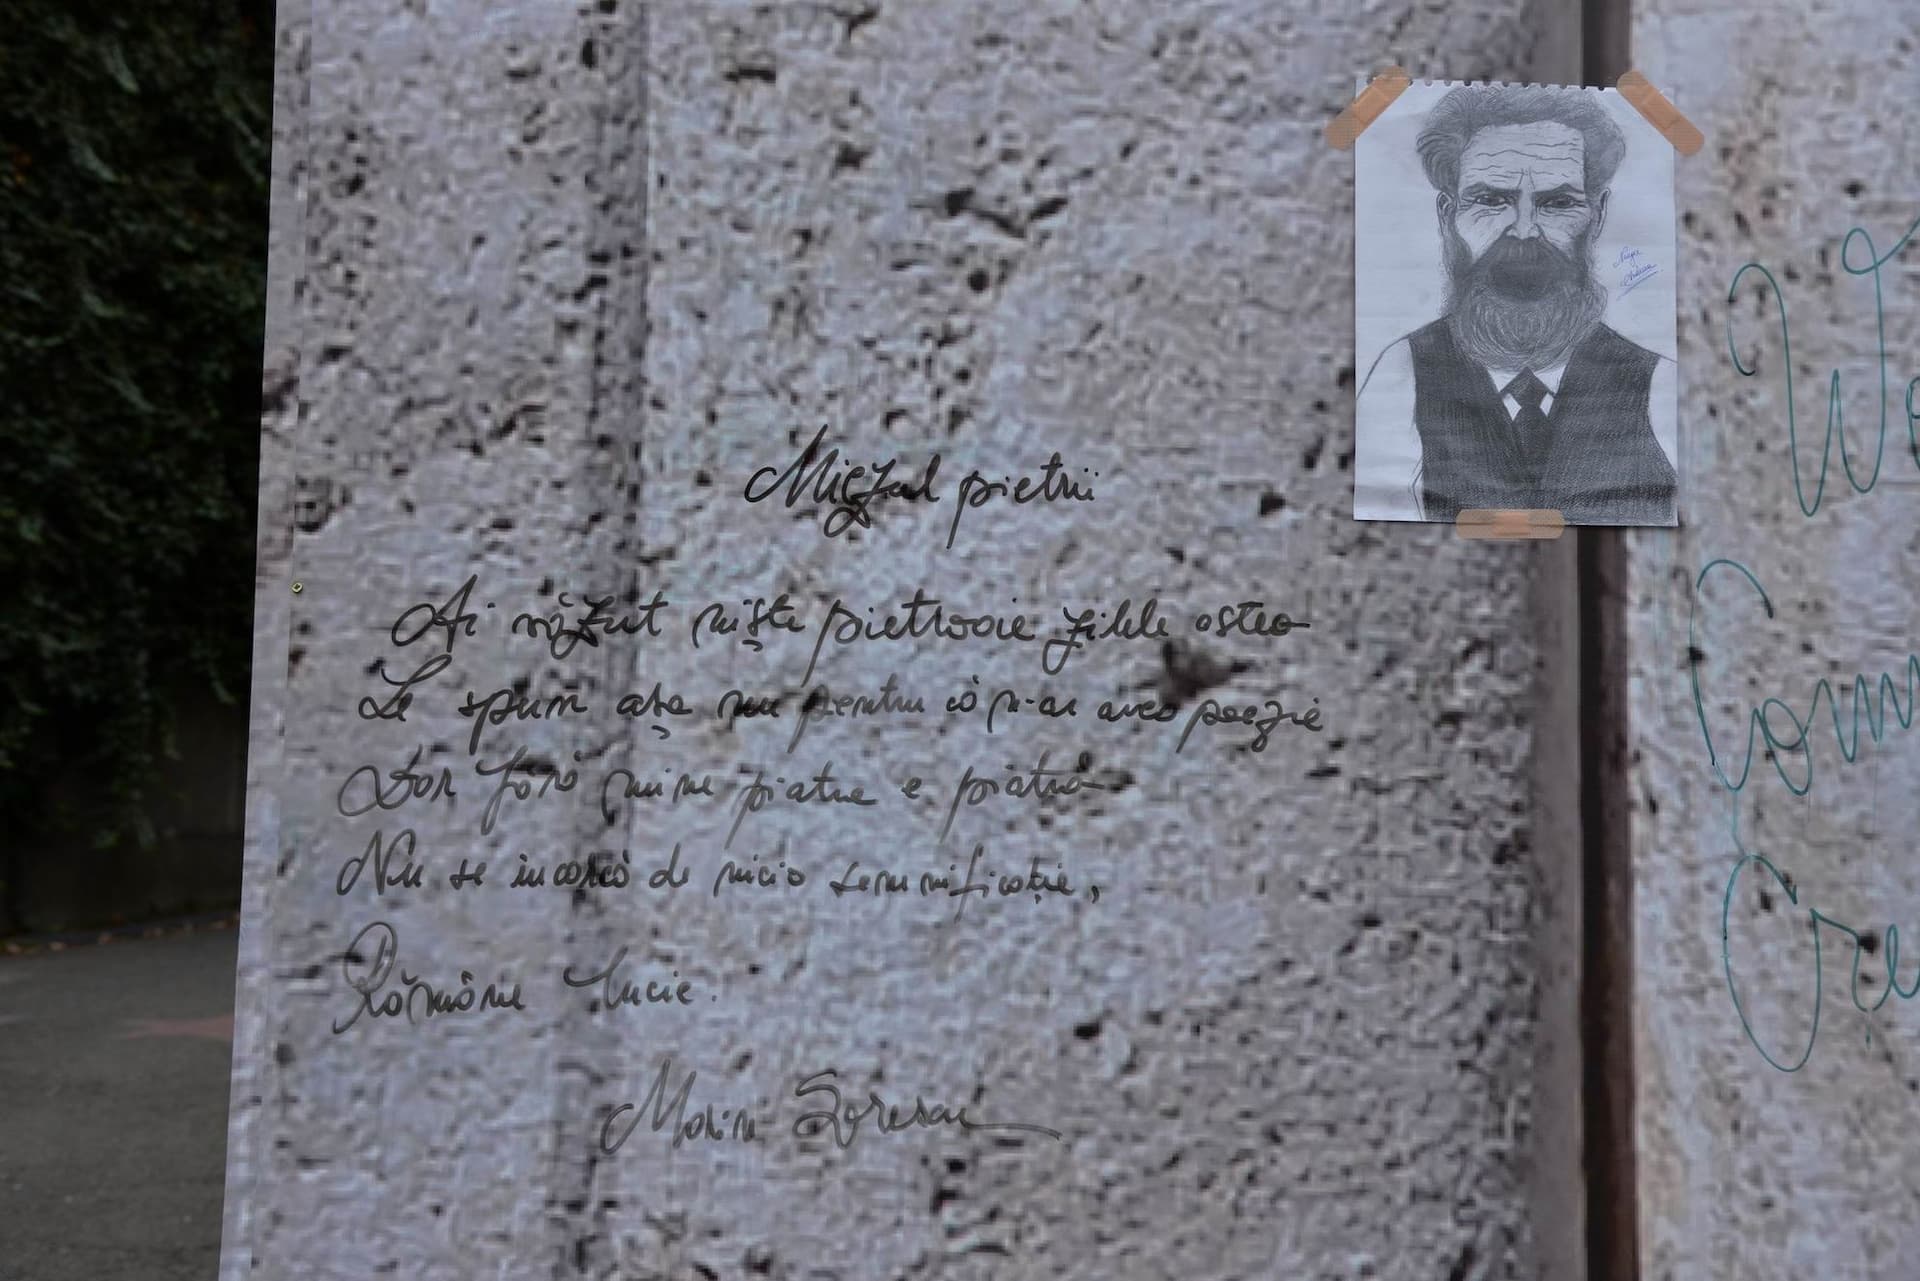 Miezul pietrii
Ai văzut niște pietroaie zilele astea
Le spun așa nu pentru că n-au avea poezie
Dar fără mine piatra e piatră
Nu se încarcă de nicio semnificație,
Rămâne lucie.
Marin Sorescu